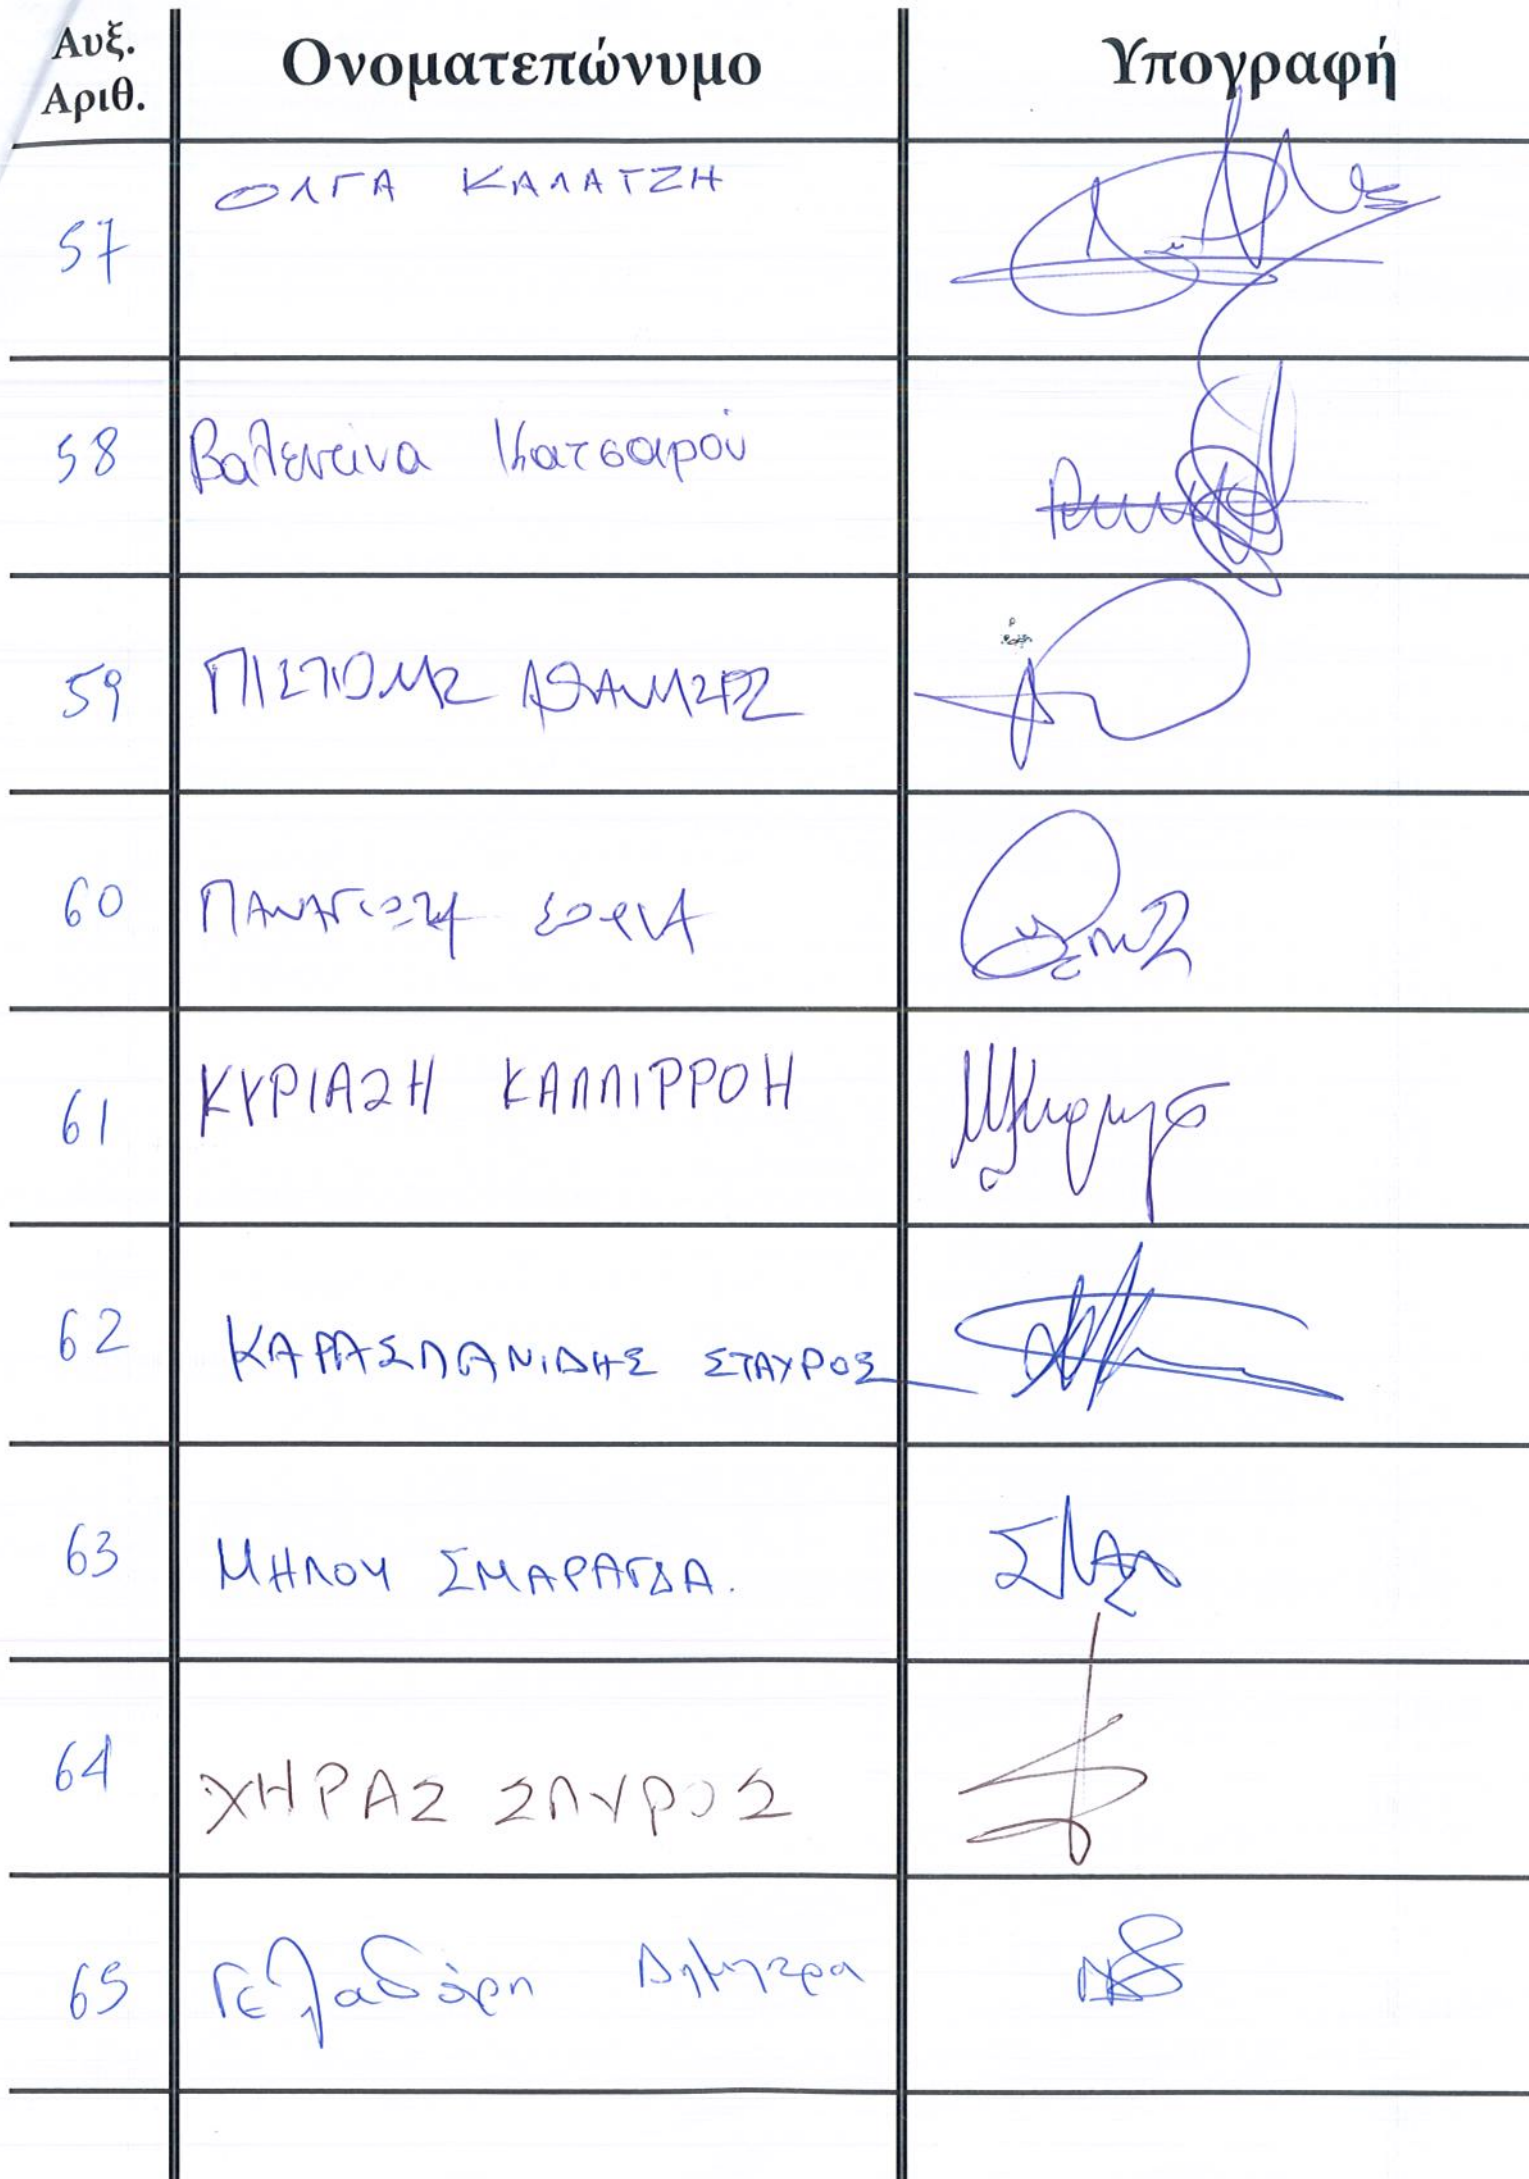 Αυξ. Αριθ. Ονοματεπώνυμο Υπογραφή
57 ΟΛΓΑ ΚΑΛΑΤΖΗ
58 Βαλεντίνα Κατσαρού
59 ΑΘΑΝΑΣΙΟΣ
60 ΠΑΝΑΓΙΩΤΗ ΣΟΦΙΑ
61 ΚΥΡΙΑΖΗ ΚΑΛΛΙΡΡΟΗ
62 ΚΑΡΑΣΛΑΝΙΔΗΣ ΣΤΑΥΡΟΣ
63 ΜΗΛΟΥ ΣΜΑΡΑΓΔΑ.
64 ΧΗΡΑΣ ΣΠΥΡΟΣ
65 Γελαδάρη Δήμητρα